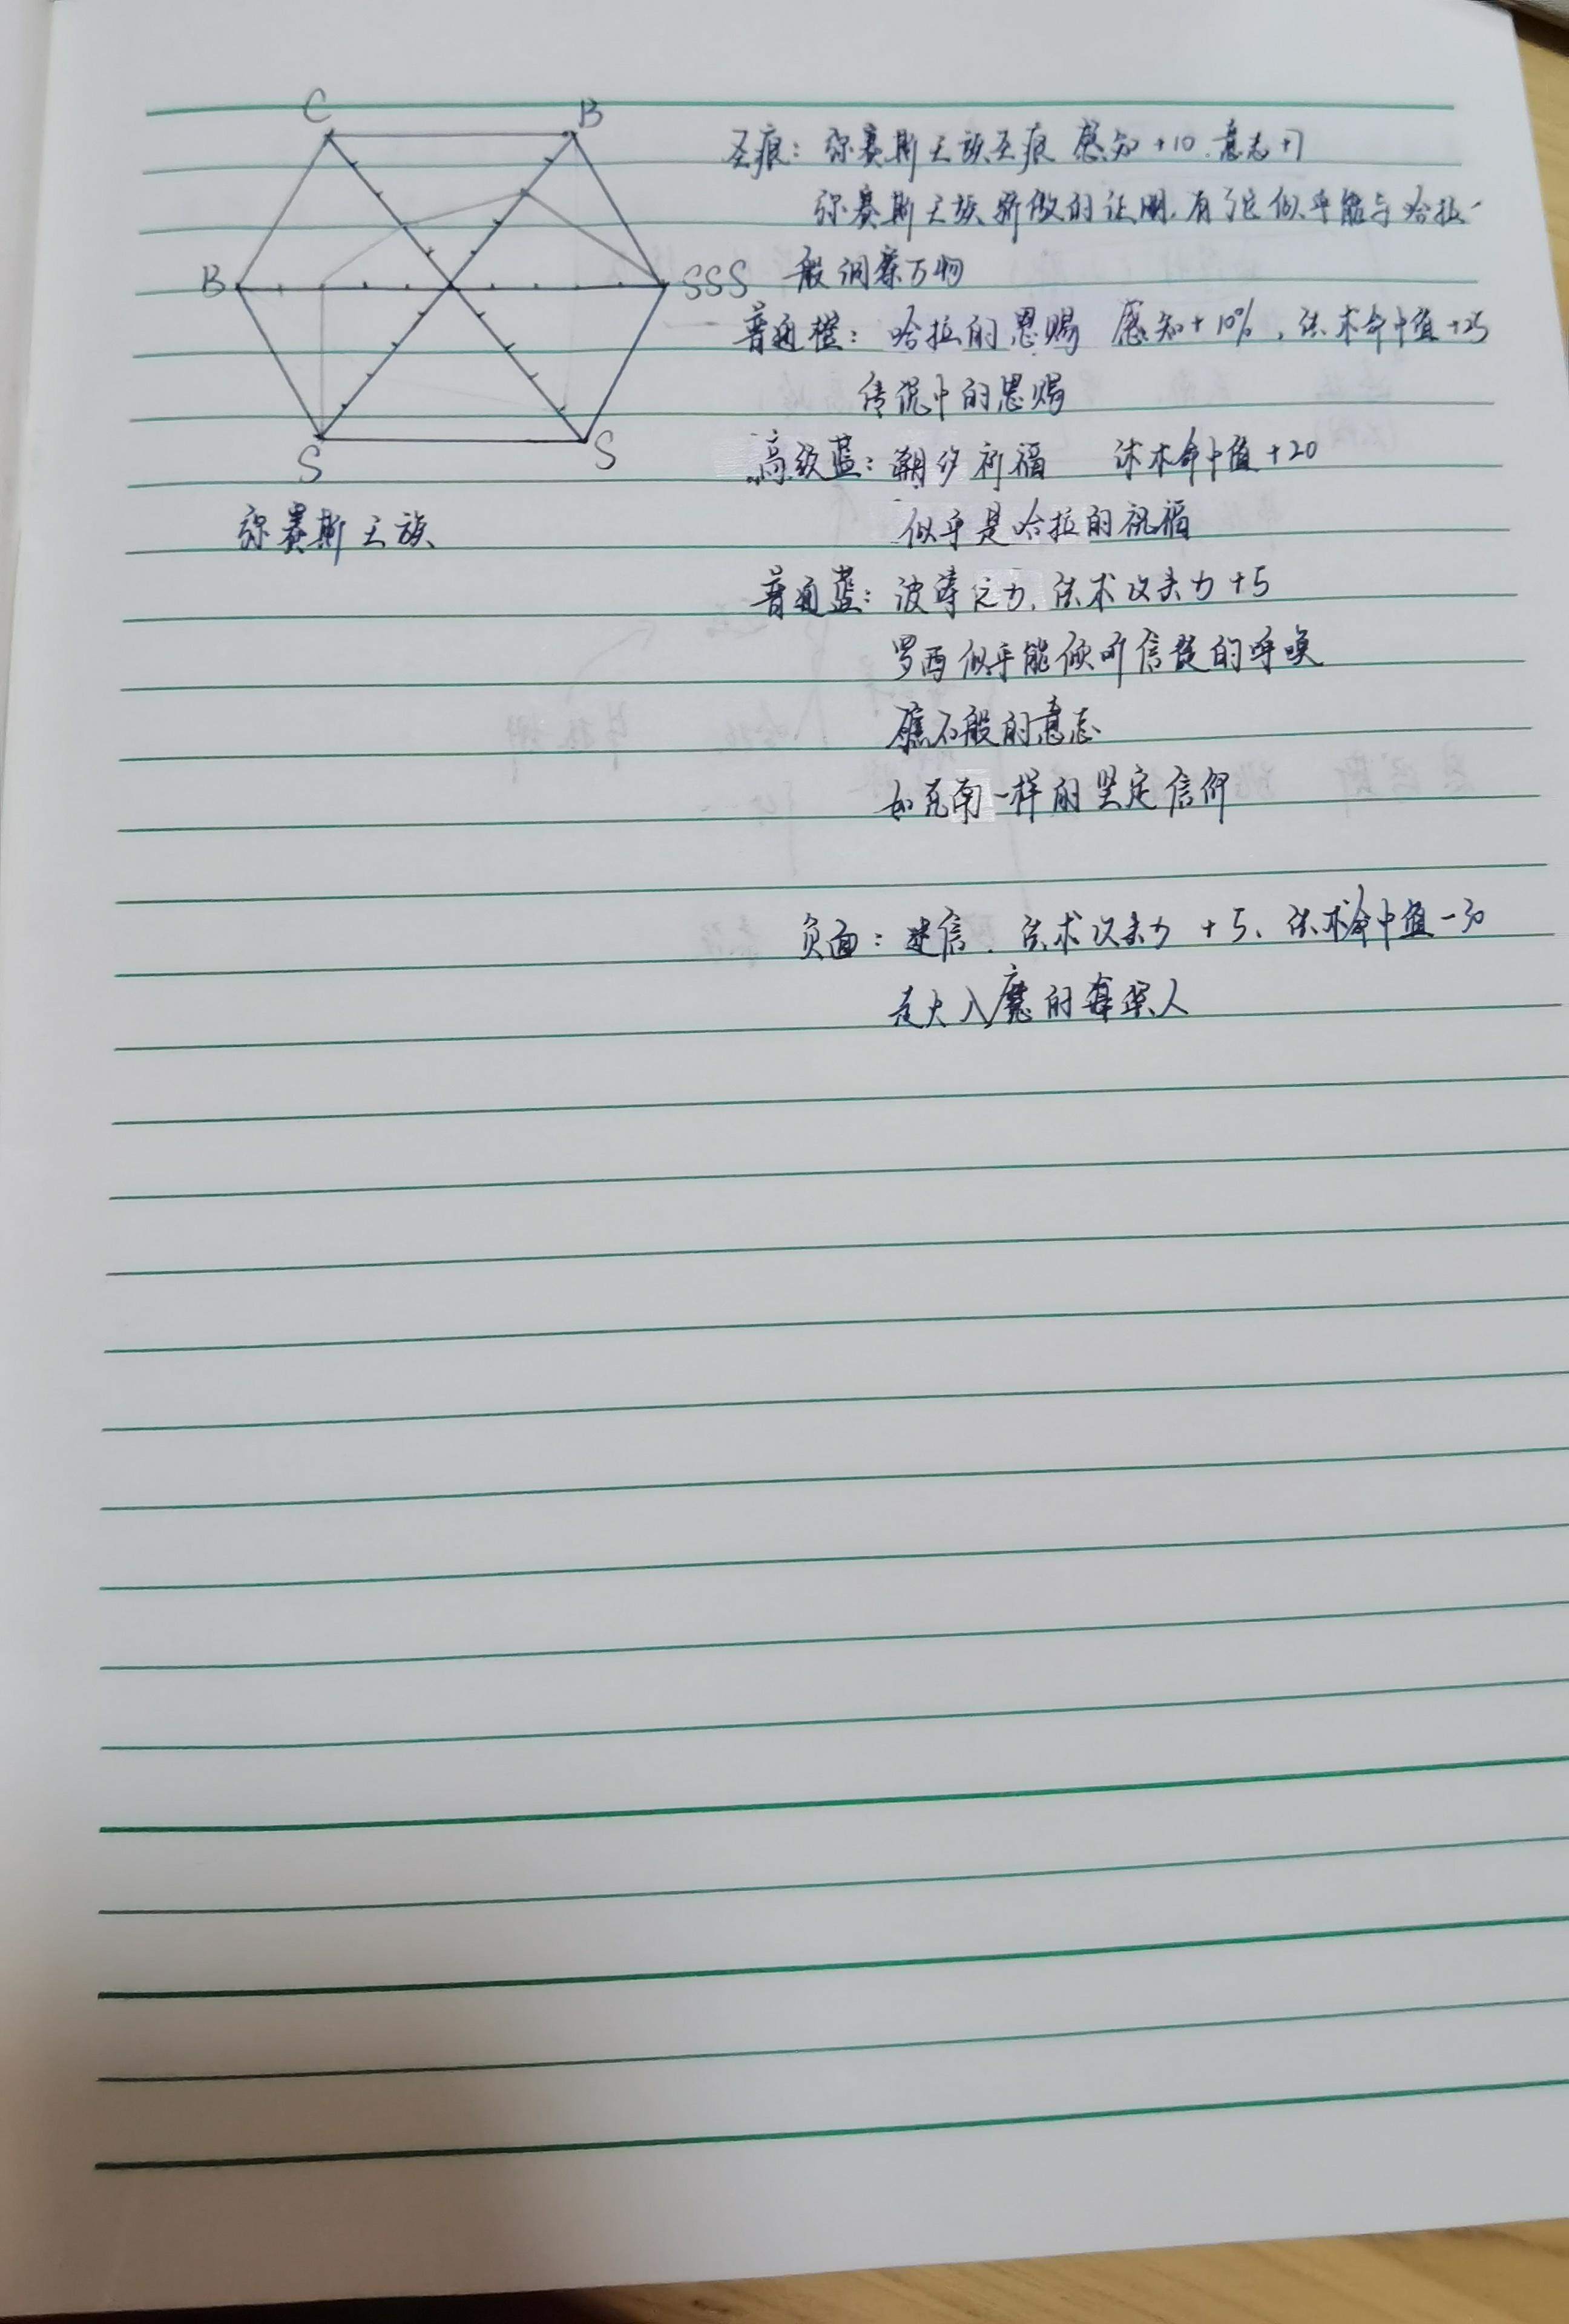 C
B
B
SSS
S
S
弥赛斯王族
圣痕：弥赛斯王族圣痕 感知+10.意志+7
弥赛斯王族骄傲的证明.有了它似乎能与哈拉一
般洞察万物
普通橙：哈拉的恩赐 感知+10%，法术命中值+25
传说中的恩赐
高级蓝：朝夕祈福 法术命中值+20
似乎是哈拉的祝福
普通蓝：波涛之力.法术攻击力+5
罗西似乎能倾听信徒的呼唤
礁石般的意志
如克南一样的坚定信仰
负面：迷信.法术攻击力+5、法术命中值-30
走火入魔的人